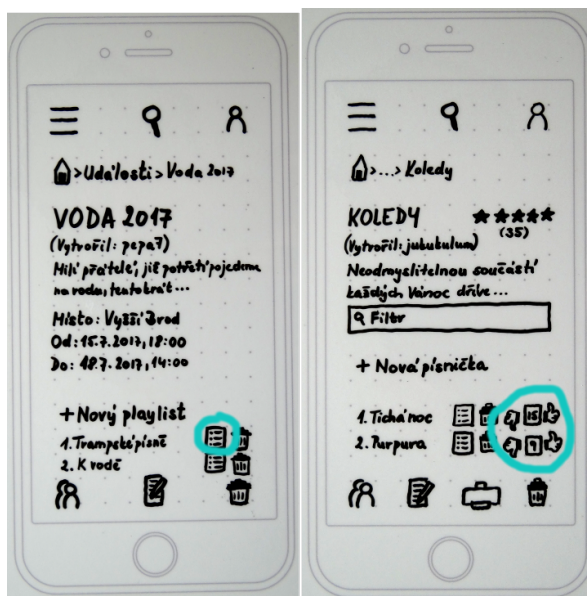 > Události > Voda 2017
VODA 2017
(Vytvořil: pepa7)
Milí přátelé, již potřetí pojedeme
na vodu, tentokrát ...
Místo: Vyšší Brod
Od: 15.7.2017, 18:00
Do: 18.7.2017, 14:00
+ Nový playlist
1. Trampské písně
2. K vodě
> ... > Koledy
KOLEDY ★★★★★
(35)
(Vytvořil: jukukulum)
Neodmyslitelnou součástí
každých Vánoc dříve ...
Filtr
+ Nová písnička
1. Tichá noc 15
2. Purpura